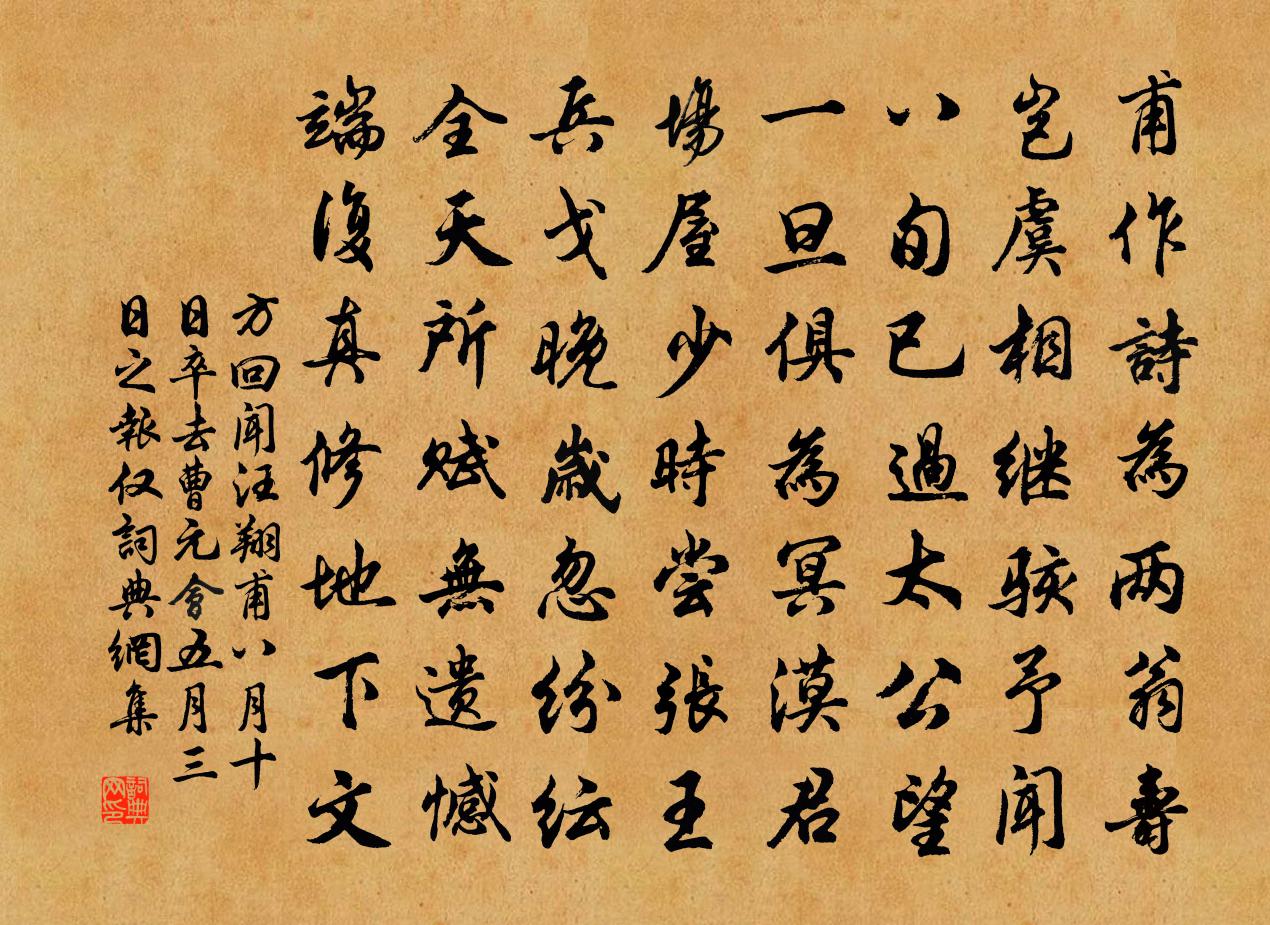 甫作詩為两翁壽
岂虞相继駭予聞
八旬已過太公望
一旦俱為冥漠君
場屋少時尝張王
兵戈晚歲忽纷纭
全天所赋無遗憾
端復真修地下文
方回聞汪翔甫八月十
日卒去曹元會五月三
日之報仅詞典網集
詞典网印